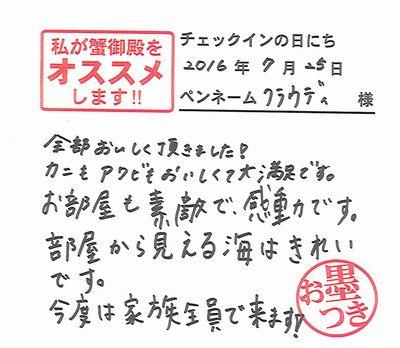 私が蟹御殿を
オススメ
します!!
チェックインの日にち
2016年7月25日
ペンネーム クラウディ 様
全部おいしく頂きました!
カニもアワビもおいしくて大満足です。
お部屋も素敵で、感動です。
部屋から見える海はきれい
です。
今度は家族全員で来ます!
お墨つき